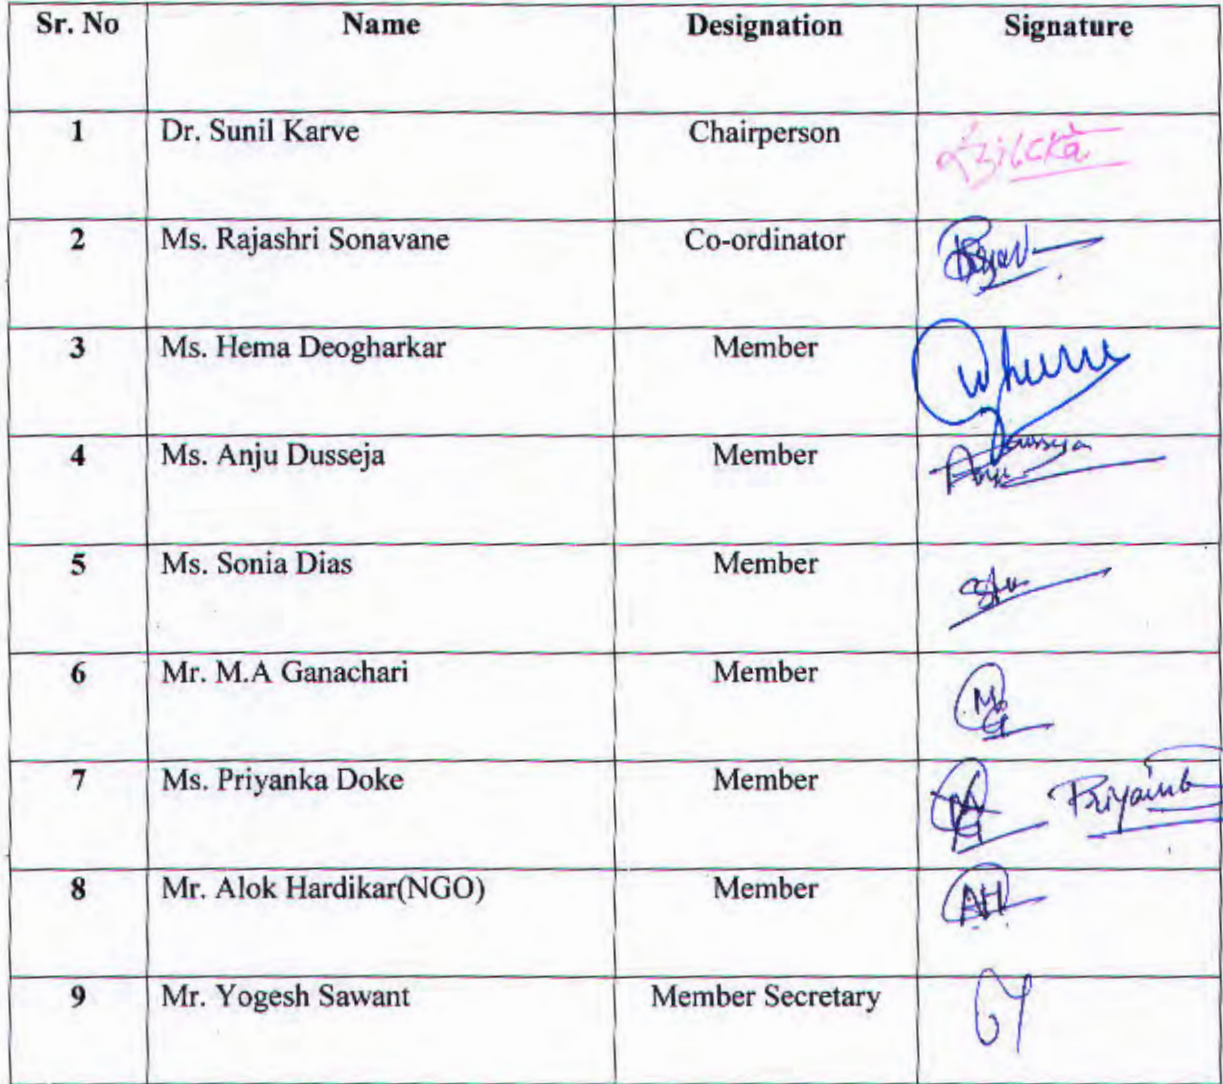 Sr. No Name Designation Signature
1 Dr. Sunil Karve Chairperson
2 Ms. Rajashri Sonavane Co-ordinator
3 Ms. Hema Deogharkar Member
4 Ms. Anju Dusseja Member Anju Dusseja
5 Ms. Sonia Dias Member
6 Mr. M.A Ganachari Member MG
7 Ms. Priyanka Doke Member Priyanka
8 Mr. Alok Hardikar(NGO) Member AH
9 Mr. Yogesh Sawant Member Secretary